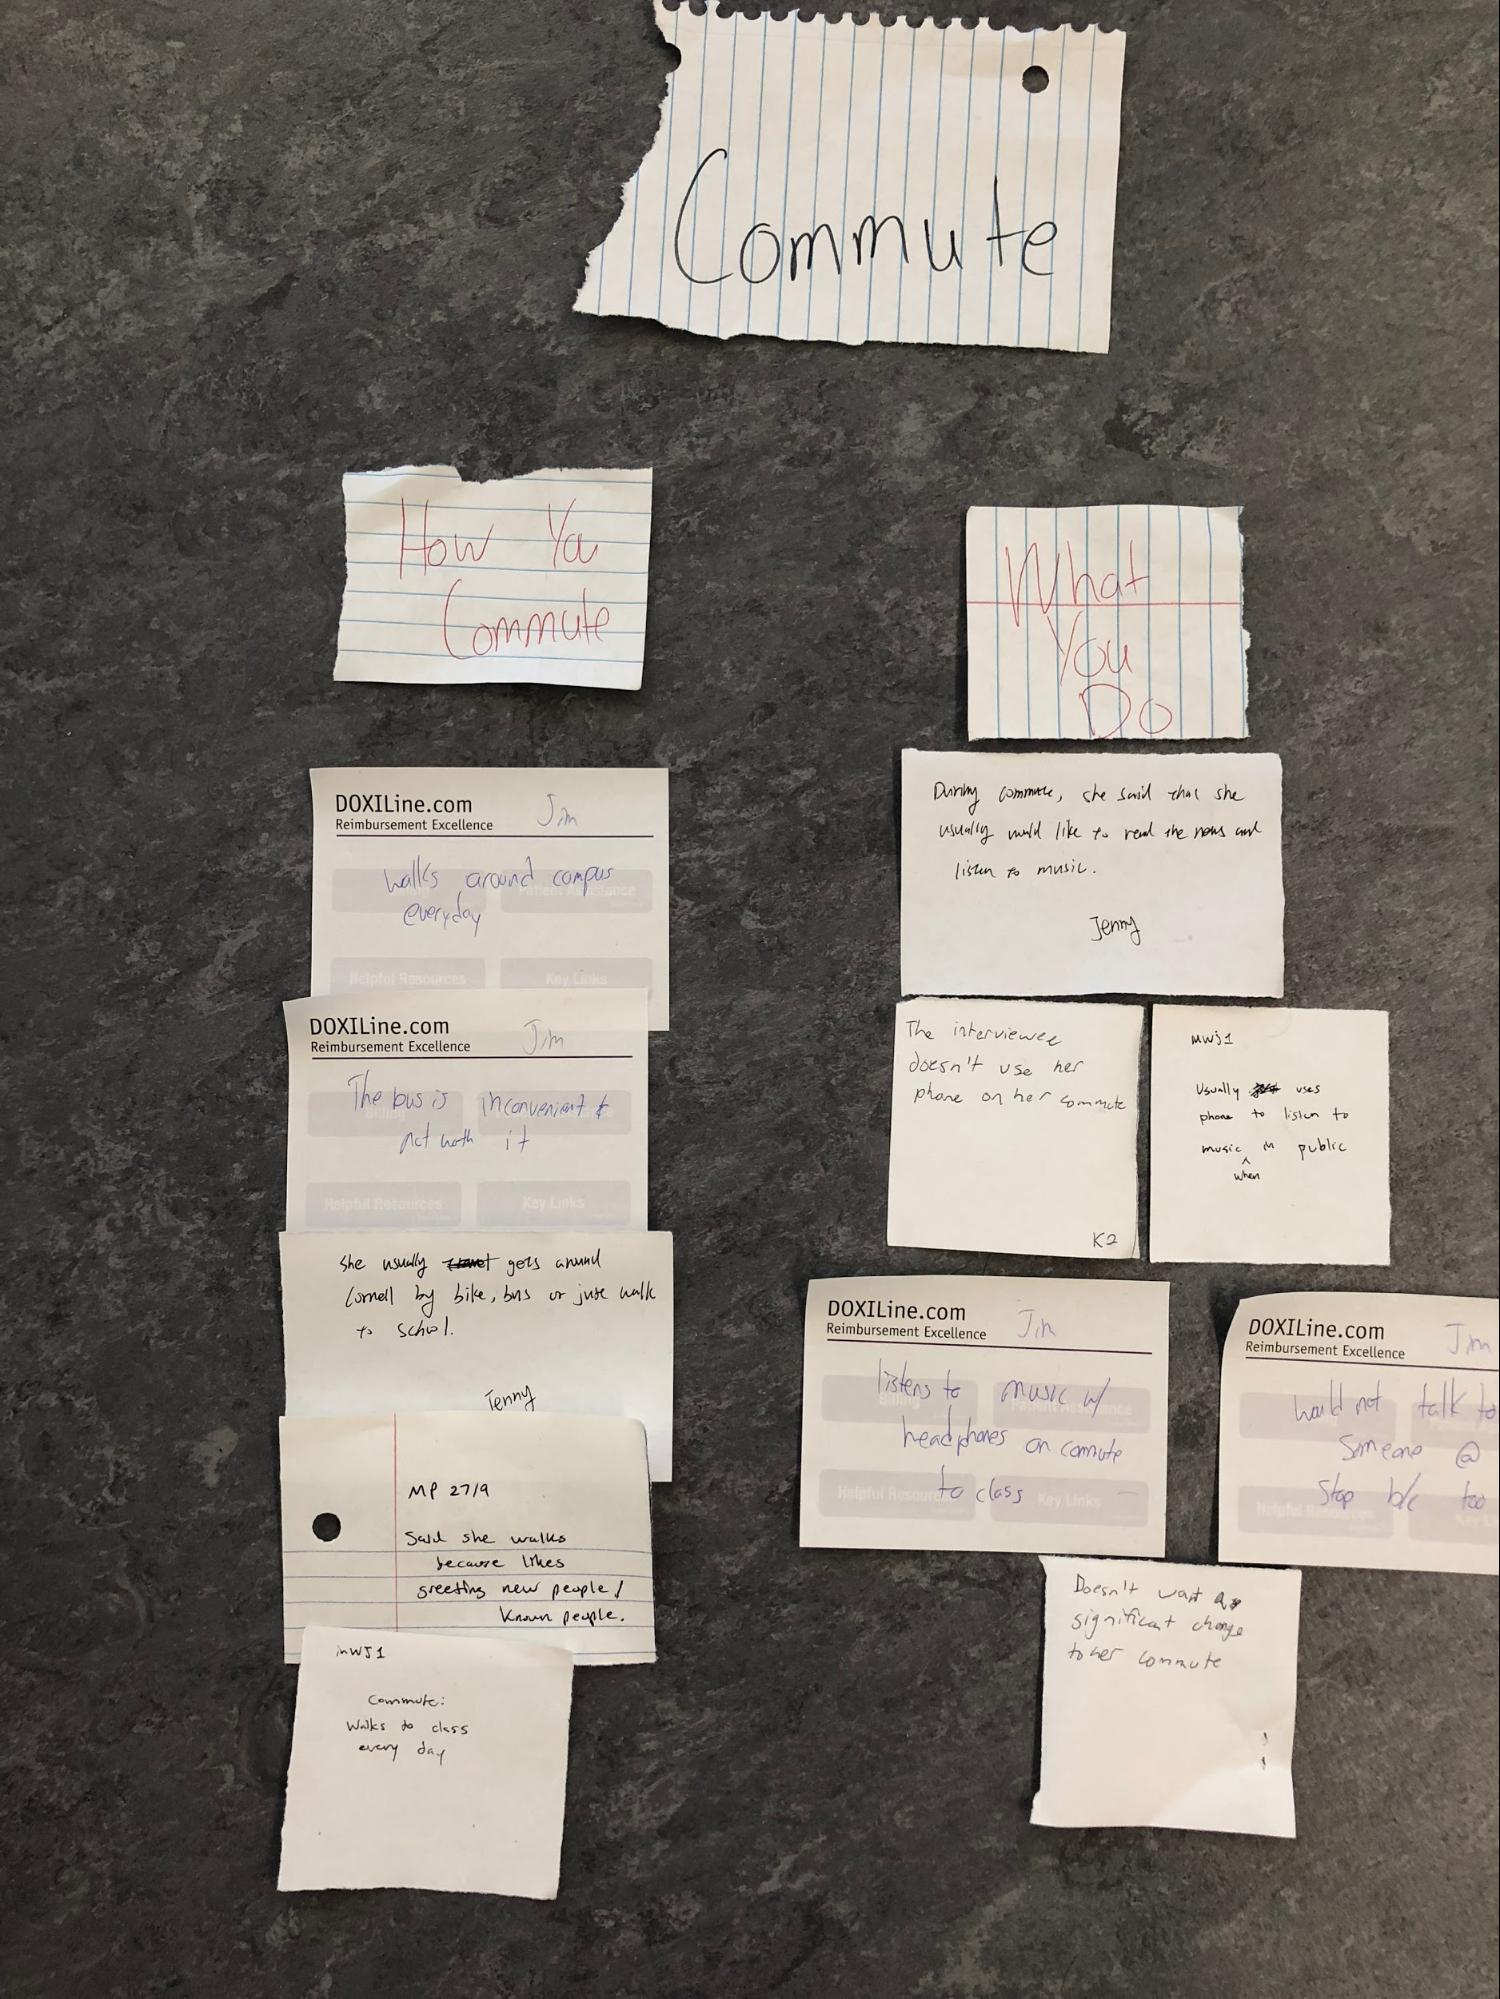 Commute
How Ya
Commute
DOXILine.com
Reimbursement Excellence
Jim
walks around campus
everyday
Patient Assistance
Helpful Resources
Key Links
DOXILine.com
Reimbursement Excellence
Jim
The bus is inconvenient &
not worth it
Helpful Resources
Key Links
She usually gets around
Cornell by bike, bus or just walk
to school.
Jenny
MP 27/9
Said she walks
because likes
greeting new people/
known people.
MWJ1
Commute:
Walks to class
every day
What
You
Do
During commute, she said that she
usually would like to read the news and
listen to music.
Jenny
The interviewee
doesn't use her
phone on her commute
K2
MWJ1
Usually uses
phone to listen to
music when in public
DOXILine.com
Reimbursement Excellence
Jim
listens to music w/
headphones on commute
to class
Billing
Patient Assistance
Helpful Resources
Key Links
DOXILine.com
Reimbursement Excellence
Jim
Would not talk to
someone @
stop b/c too
Helpful Resources
Doesn't want a
significant change
to her commute